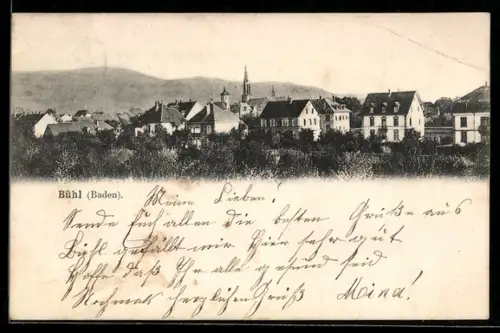 Bühl (Baden).
Meine Lieben!
Sende Euch allen die besten Grüße aus
Bühl gefällt mir hier sehr gut
Hoffe daß Ihr alle gesund seid
Nochmals herzlichen Gruß Mina!